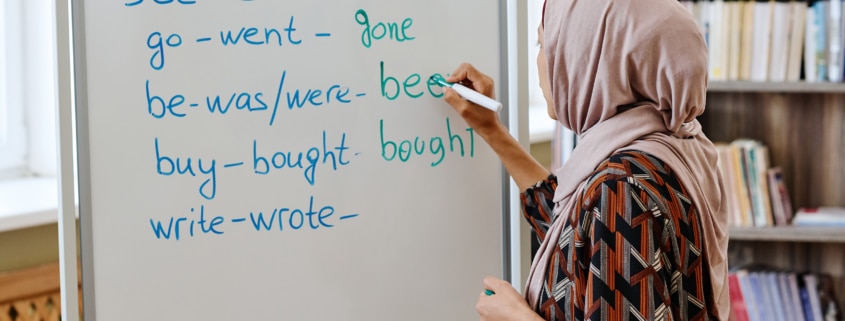 go - went - gone
be - was/were - bee
buy - bought - bought
write - wrote -